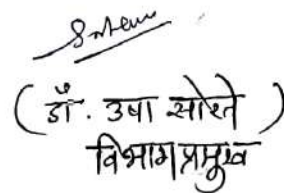 ( डॉ. उषा सोरते )
विभाग प्रमुख